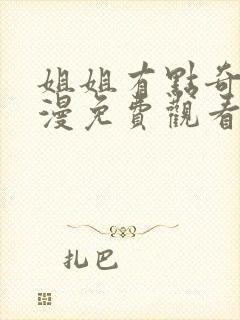 姐姐有點奇
漫免費觀看
扎巴